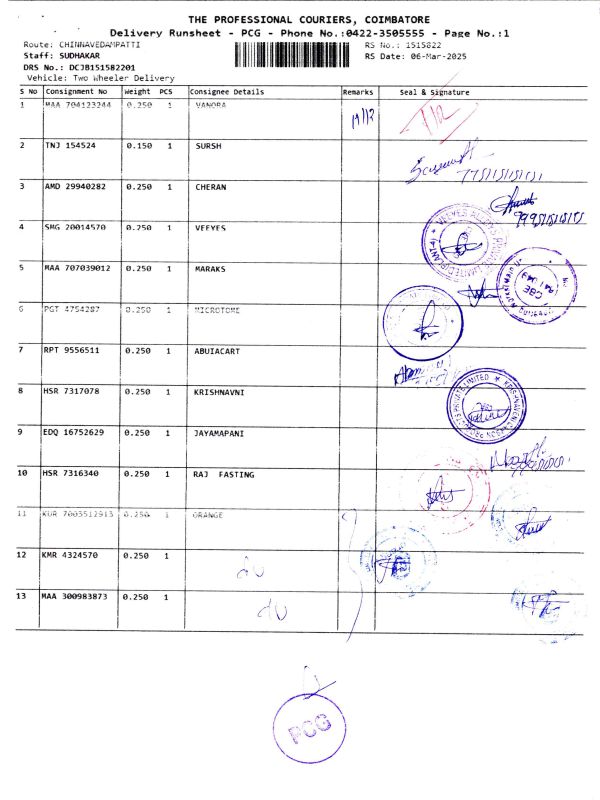 THE PROFESSIONAL COURIERS, COIMBATORE
Delivery Runsheet - PCG - Phone No.:0422-3505555 - Page No.:1
Route: CHINNAVEDAMPATTI RS No.: 1515822
Staff: SUDHAKAR RS Date: 06-Mar-2025
DRS No.: DCJB151582201
Vehicle: Two Wheeler Delivery
S No Consignment No Weight PCS Consignee Details Remarks Seal & Signature
1 MAA 704123244 0.250 1 VANORA
2 TNJ 154524 0.150 1 SURSH
3 AMD 29940282 0.250 1 CHERAN
4 SMG 20014570 0.250 1 VEEYES
5 MAA 707039012 0.250 1 MARAKS
6 PGT 4754287 0.250 1 MICROTOME
7 RPT 9556511 0.250 1 ABUIACART
8 HSR 7317078 0.250 1 KRISHNAVNI
9 EDQ 16752629 0.250 1 JAYAMAPANI
10 HSR 7316340 0.250 1 RAJ FASTING
11 KUR 7003512913 0.250 1 ORANGE
12 KMR 4324570 0.250 1
13 MAA 300983873 0.250 1
PCG